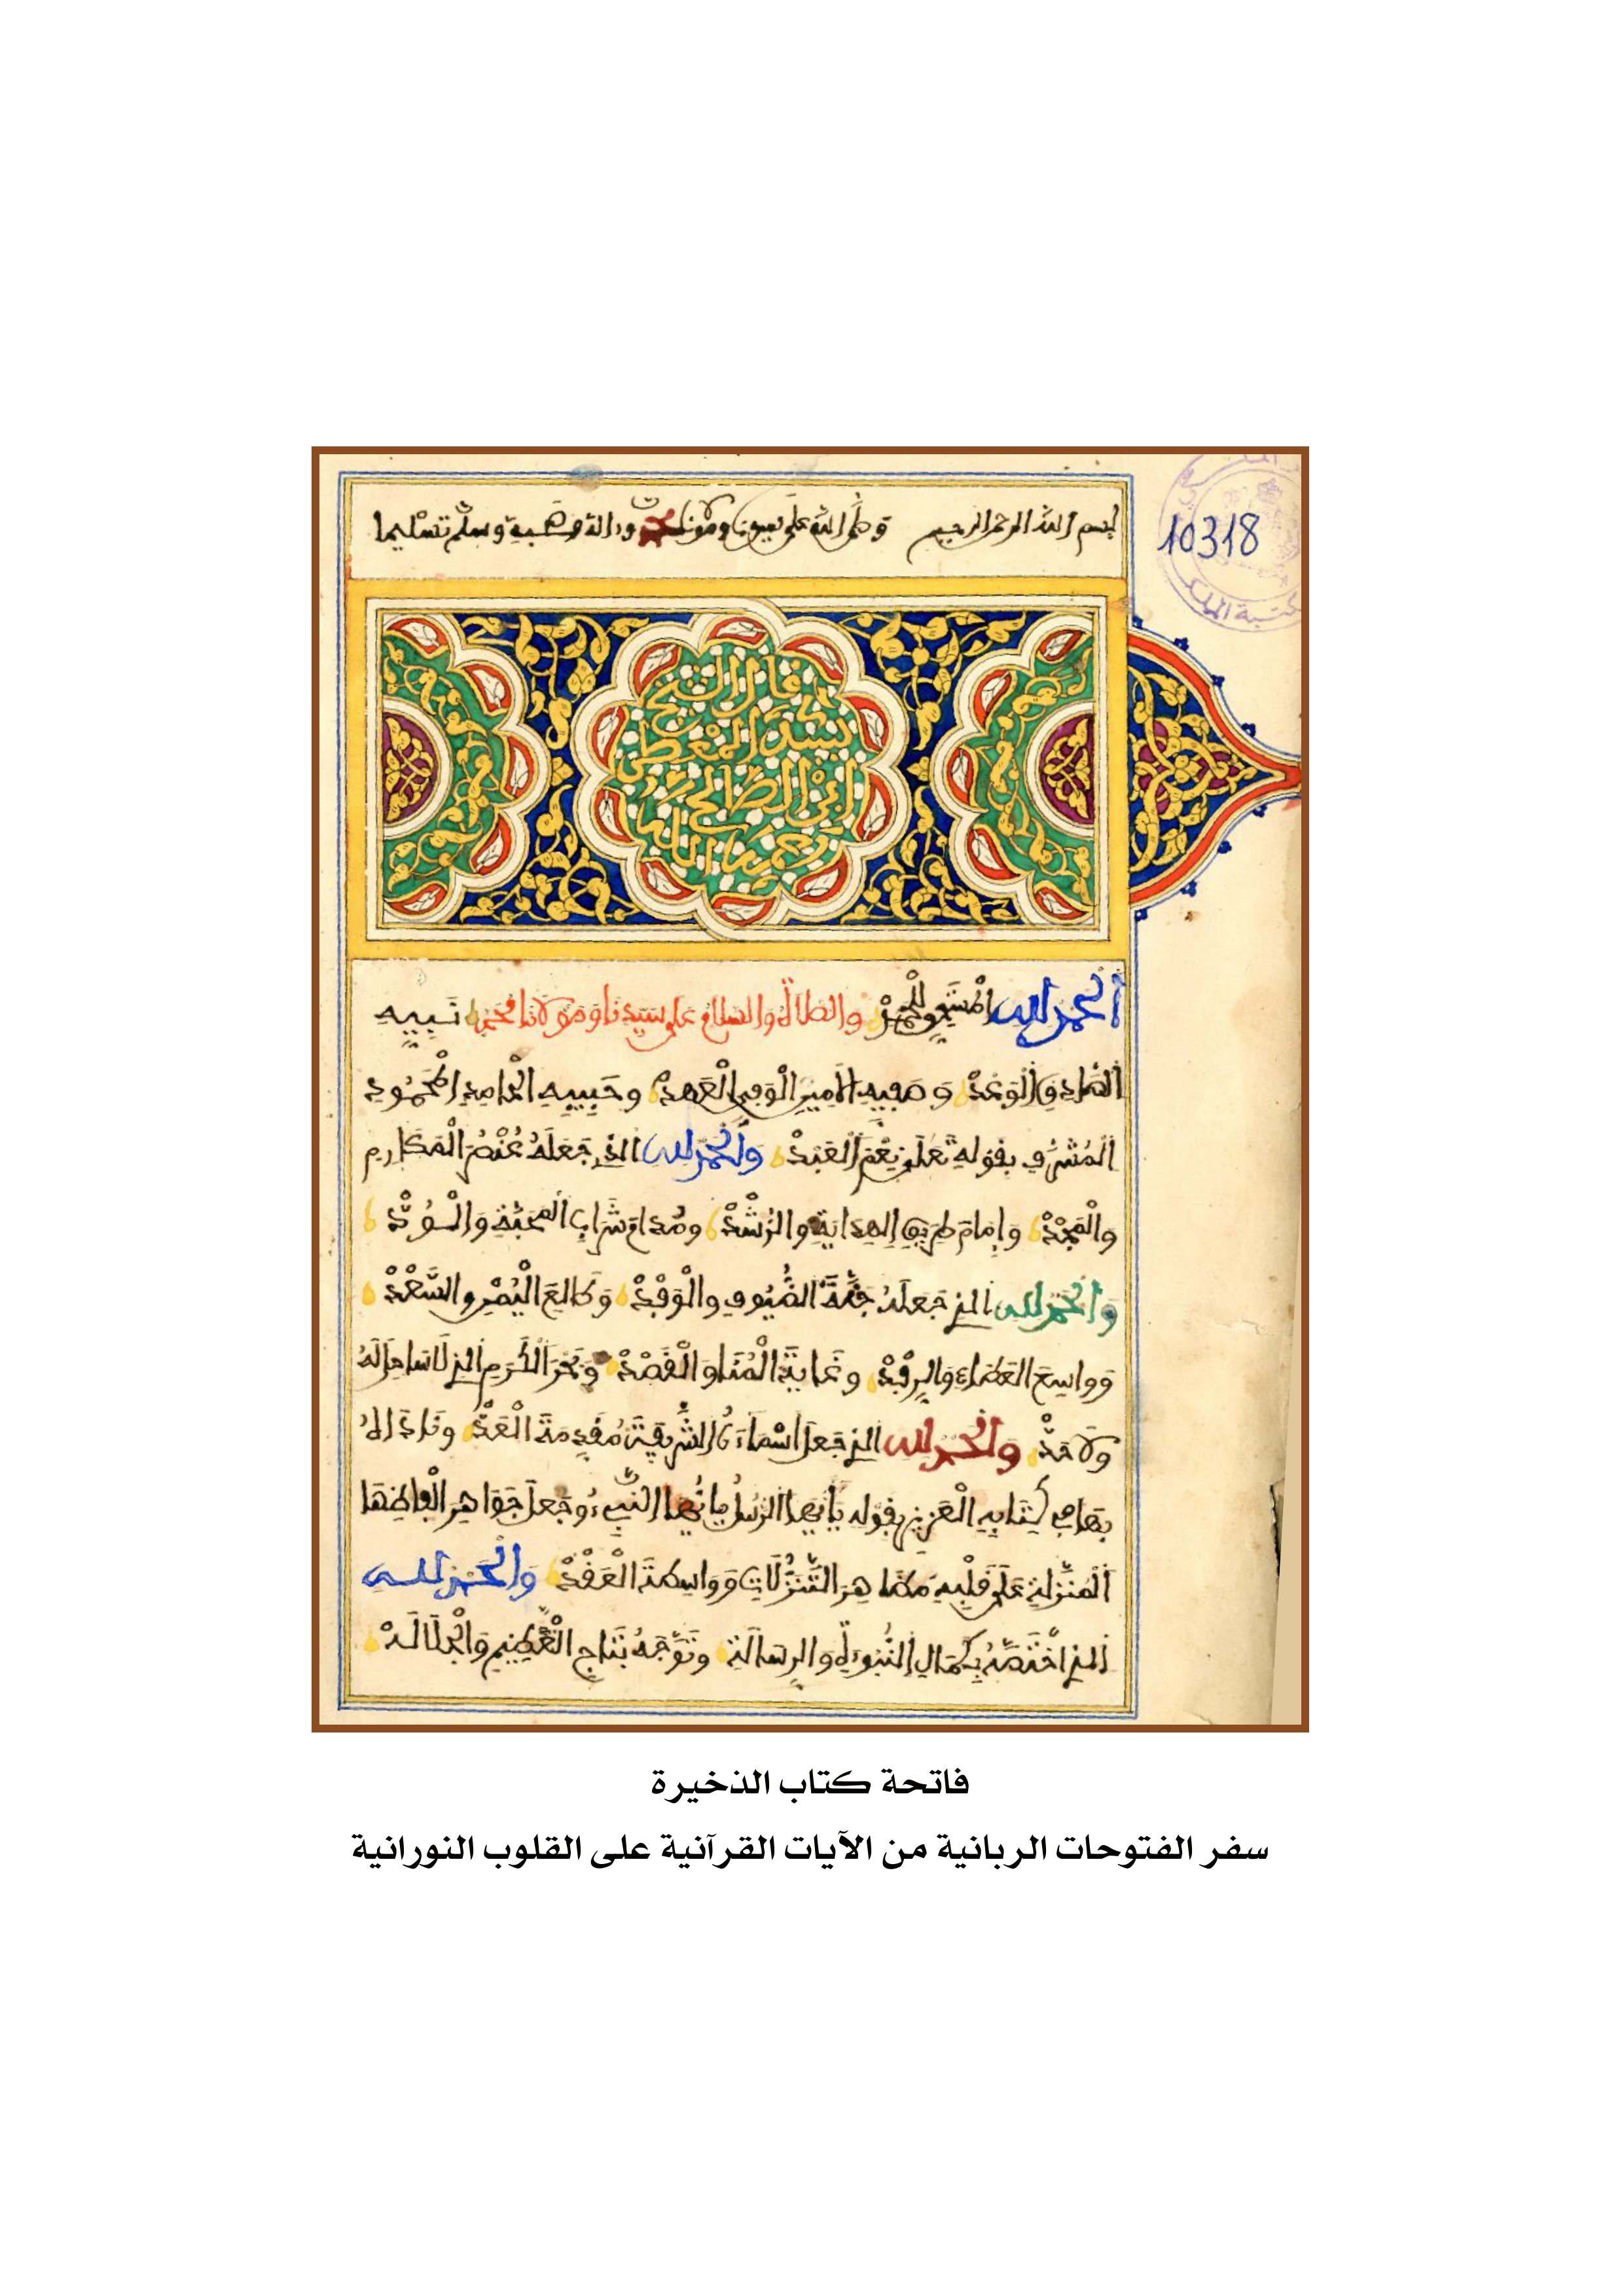 بسم الله الرحمن الرحيم وصلى الله على سيدنا ومولانا محمد وءاله وصحبه وسلم تسليما
10318
قال الشيخ
سيدنا المعطى
ابن الصالح
رحمه الله
اَلْحَمْدُ لِلهِ الْمُسْتَحِقِّ لِلْحَمْدْ والصلاةُ والسلامُ على سيدنا ومولانا محمد نَبِيِّهِ
الصَّادِقِ الْوَعْدْ وَصَفِيِّهِ الْأَمِينِ الْوَفِيِّ الْعَهْدْ وحَبِيبِهِ الْحَامِدِ الْمَحْمُودِ
الْمُشَرَّفِ بقولِهِ تَعَلَى نِعْمَ الْعَبْدْ وَالْحَمْدُ لِلهِ الذِي جَعَلَهُ عُنْصُرَ الْمَكَارِمِ
والْمَجْدْ وَإِمَامَ طَرِيقِ الهِدَايَةِ والرُّشْدْ ومُدَامَ شَرَابِ المَحَبَّةِ وَالْوُدّْ
وَالْحَمْدُ لِلهِ الذِي جَعَلَهُ جَنَّةَ الضُّيُوفِ والْوَفْدْ وَطَالِعَ الْيُمْنِ والسَّعْدْ
وَوَاسِعَ العَطَاءِ وَالرِفْدْ وغَايَةَ الْمُنَا وَالْقَصْدْ وَبَحْرَ الْكَرَمِ الذِي لَا سَاحِلَ لَهُ
ولَا حَدّْ وَالْحَمْدُ لِلهِ الذِي جَعَلَ أَسْمَاءَهُ الشَّرِيفَةَ مُقَدِّمَةَ الْعَدّْ ونَادَاهُ
بِهَا فِي كِتَابِهِ الْعَزِيزِ بقولِهِ يَأَيُّهَا الرَّسُلُ يَأَيُّهَا النَّبِيءُ وجَعَلَ جَوَاهِرَ أَلْفَاظِهَا
الْمُنَزَّلَةِ عَلَى قَلْبِهِ مَظَاهِرَ التَّنَزُّلَاتِ وَوَاسِطَةَ الْعَقْدْ وَالْحَمْدُ لِلهِ
الذِي اخْتَصَّهُ بِكَمَالِ النُّبُوءَةِ وَالرِسَالَهْ وَتَوَّجَهُ بِتَاجِ التَّعْظِيمِ وَالْجَلَالَهْ
فاتحة كتاب الذخيرة
سفر الفتوحات الربانية من الآيات القرآنية على القلوب النورانية